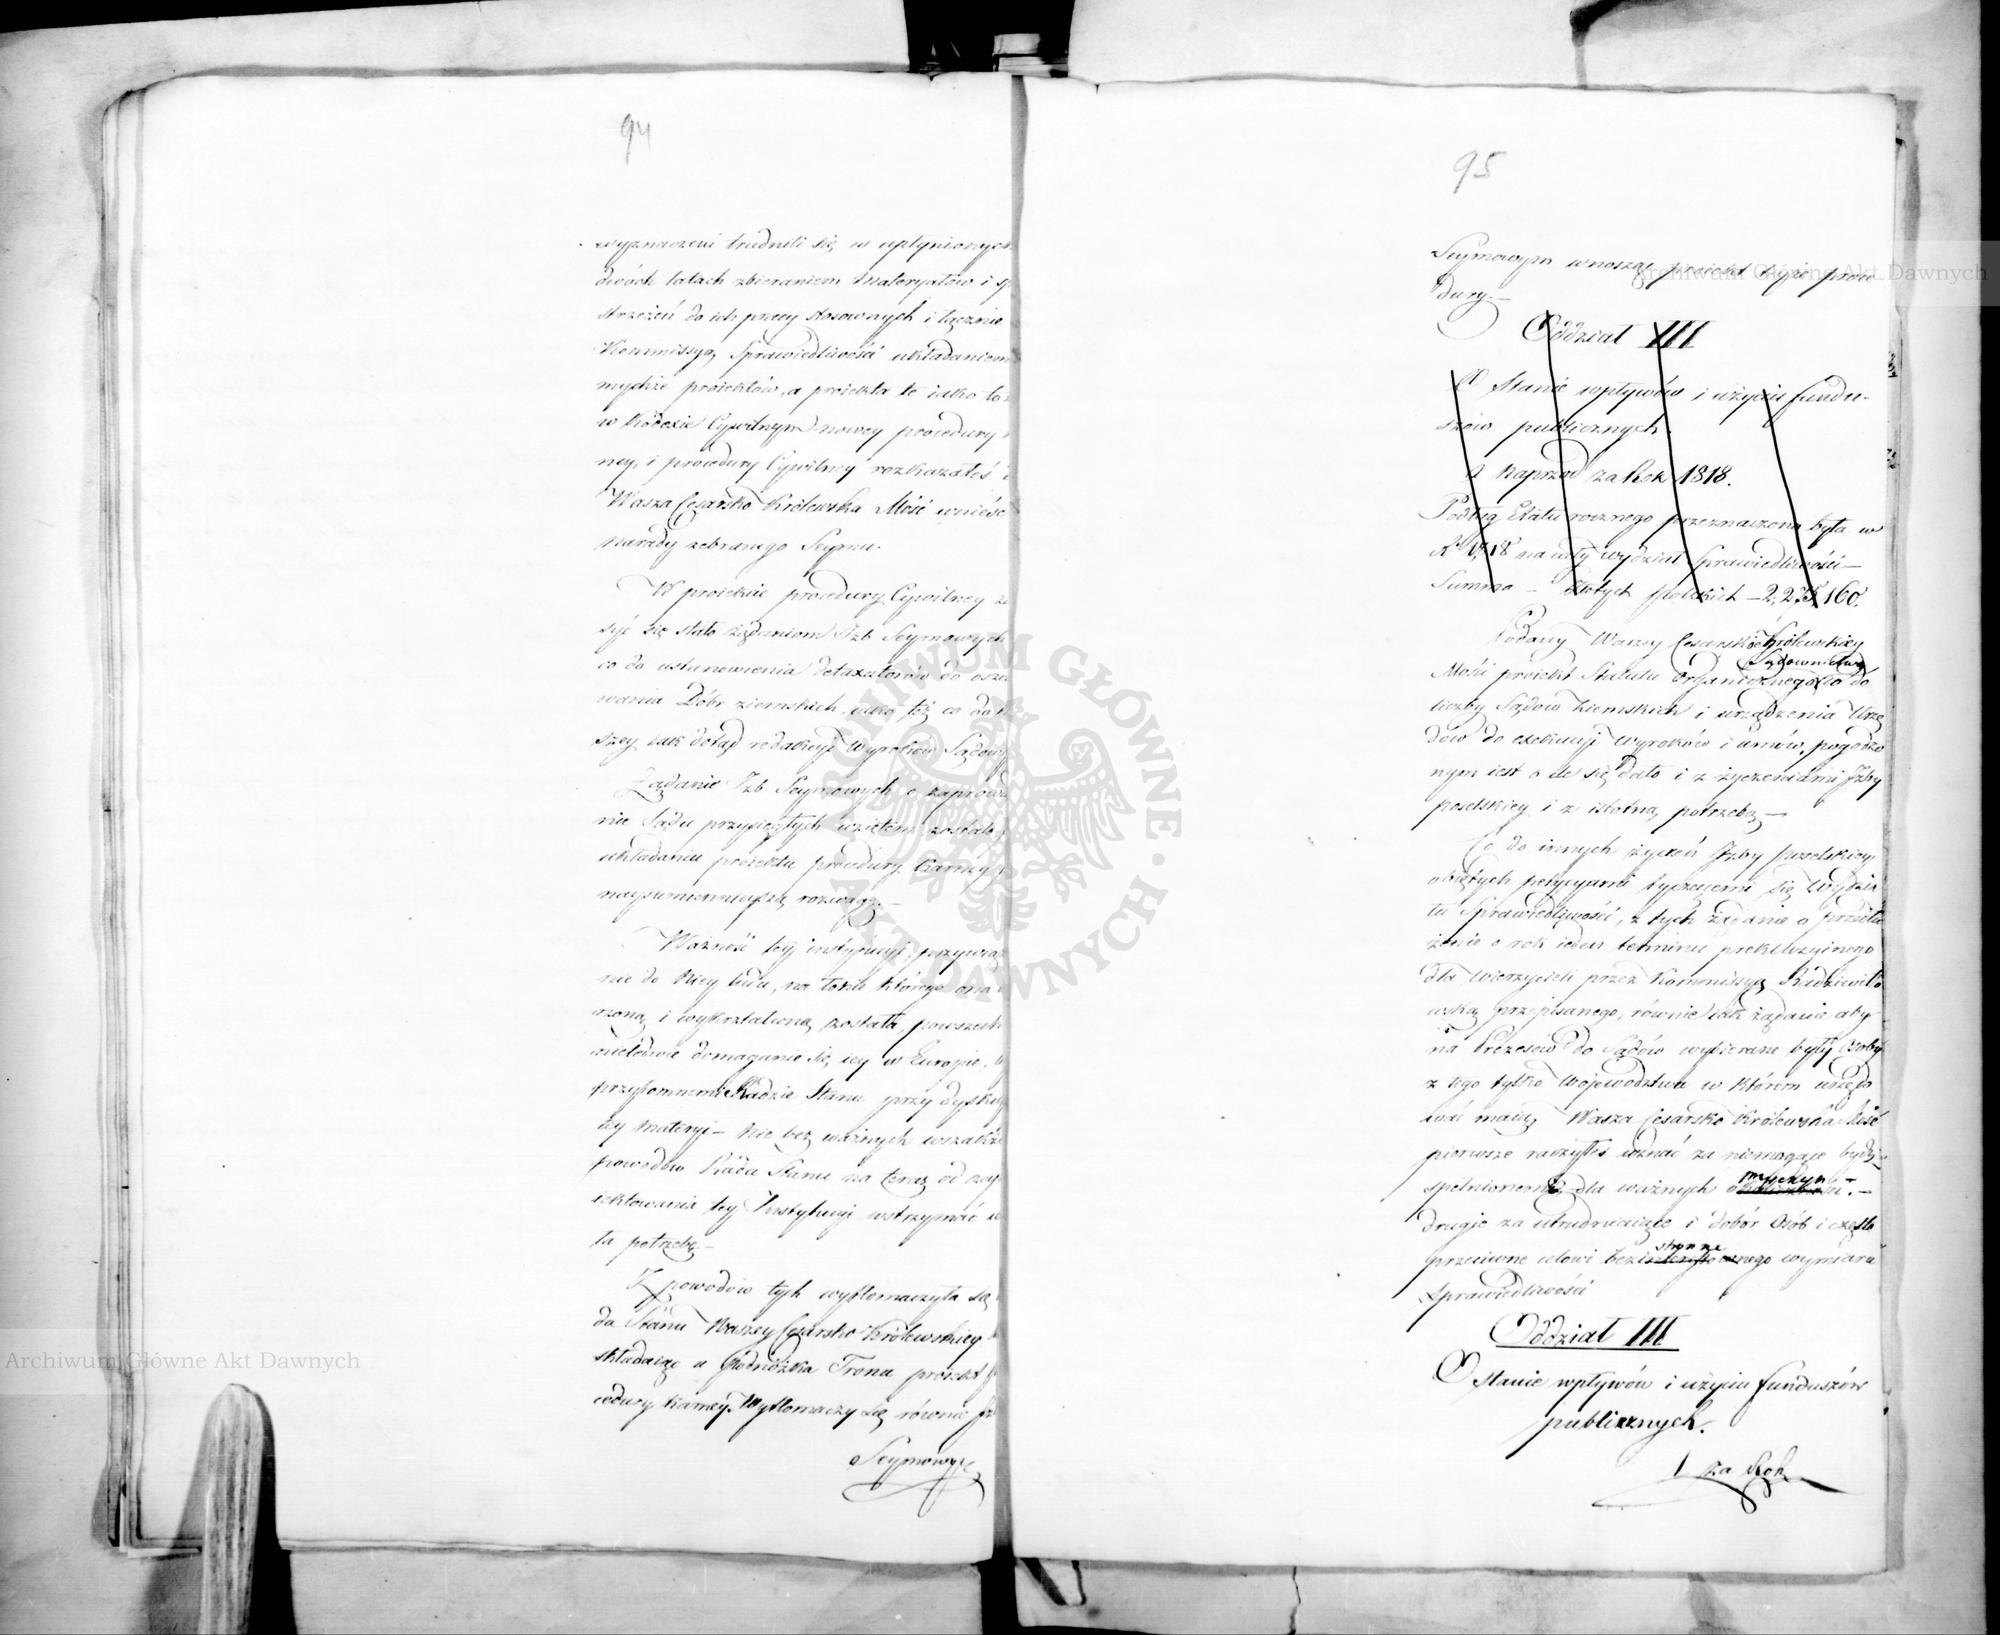 94
wyznaczeni trudnili się w upłynionych
dwóch latach zbieraniem Materyałów i sp
strzeżeń do ich pracy stosownych i łącznie
Kommissyą Sprawiedliwości układaniem
mychże proiektów, a proiekta te iako to
w Kodexie Cywilnym nowey procedury
ney, i procedury Cywilney rozkazałeś
Wasza Cesarsko Królewska Mość wnieść
narady zebranego Seymu.
W proiekcie procedury Cywilney za
syć się stało żądaniom Izb Seymowych
co do ustanowienia detaxatorów do osza
wania Dóbr ziemskich, iako też co do k
szey iak dotąd redakcyi Wyroków Sądowy
Żądanie Izb Seymowych o zaprowa
nie Sądu przysięgłych wzięte zostało
układaniu proiektu procedury Karney
naysumiennieyszą rozwagę.
Ważność tey instytucyi, przywią
nie do Niey ludu, na łonie którego ona
rzoną i wykształconą została, powszech
domaganie się iey w Europie,
przytomnemi Radzie Stanu przy dysku
tey materyi – Nie bez ważnych wszakże
powodów Rada Stanu na teraz od za
iektowania tey Instytucyi wstrzymać u
ta potrzebę.
Z powodów tych wytłomaczyła się
da Stanu Waszey Cesarsko Królewskiey
składaiąc u Podnóżka Tronu proiekt
cedury Karney. Wytłomaczy się równie Iz
Seymowym
95
Seymowym wnosząc proiekt teyże proce
dury.
Oddział III
O Stanie wpływów i użyciu fundu-
szów publicznych.
A Naprzód za Rok 1818.
Podług Etatu rocznego przeznaczoną była w
R. 1818 na cały wydział Sprawiedliwości –
Summa – Złotych Polskich – 2,275,160.
Podany Waszey Cesarsko Królewskiey
Sądownictwa
Mości proiekt Statutu Organicznego co do
liczby Sądów Ziemskich i urządzenia Urzę
dów do exekucyi Wyroków i umów, pogodzo
nym iest o ile się dało i z życzeniami Izby
Poselskiey i z istotną potrzebą –
Co do innych życzeń Izby poselskiey
obiętych petycyami tyczącemi się Wydzia
łu Sprawiedliwości, z tych żądanie o przedłu
żenie o rok ieden terminu prekluzyinego
dla Wierzycieli przez Kommissyą Radziwiłło
wską przepisanego, równie iak żądanie aby
na Prezesów do Sądów wybierane były Osoby
z tego tylko Województwa w którem urzędo
wać maią, Wasza Cesarsko Królewska Mość
pierwsze raczyłeś uznać za niemogące bydź
przyczyn
spełnionem dla ważnych okoliczności. –
drugie za utrudniaiące i dobór Osób i często
stronne
przeciwne celowi bezinteressownego wymiaru
Sprawiedliwości
Oddział III
O stanie wpływów i użyciu funduszów
publicznych.
1 za Rok
ARCHIWUM GŁÓWNE AKT DAWNYCH
Archiwum Główne Akt Dawnych
Archiwum Główne Akt Dawnych